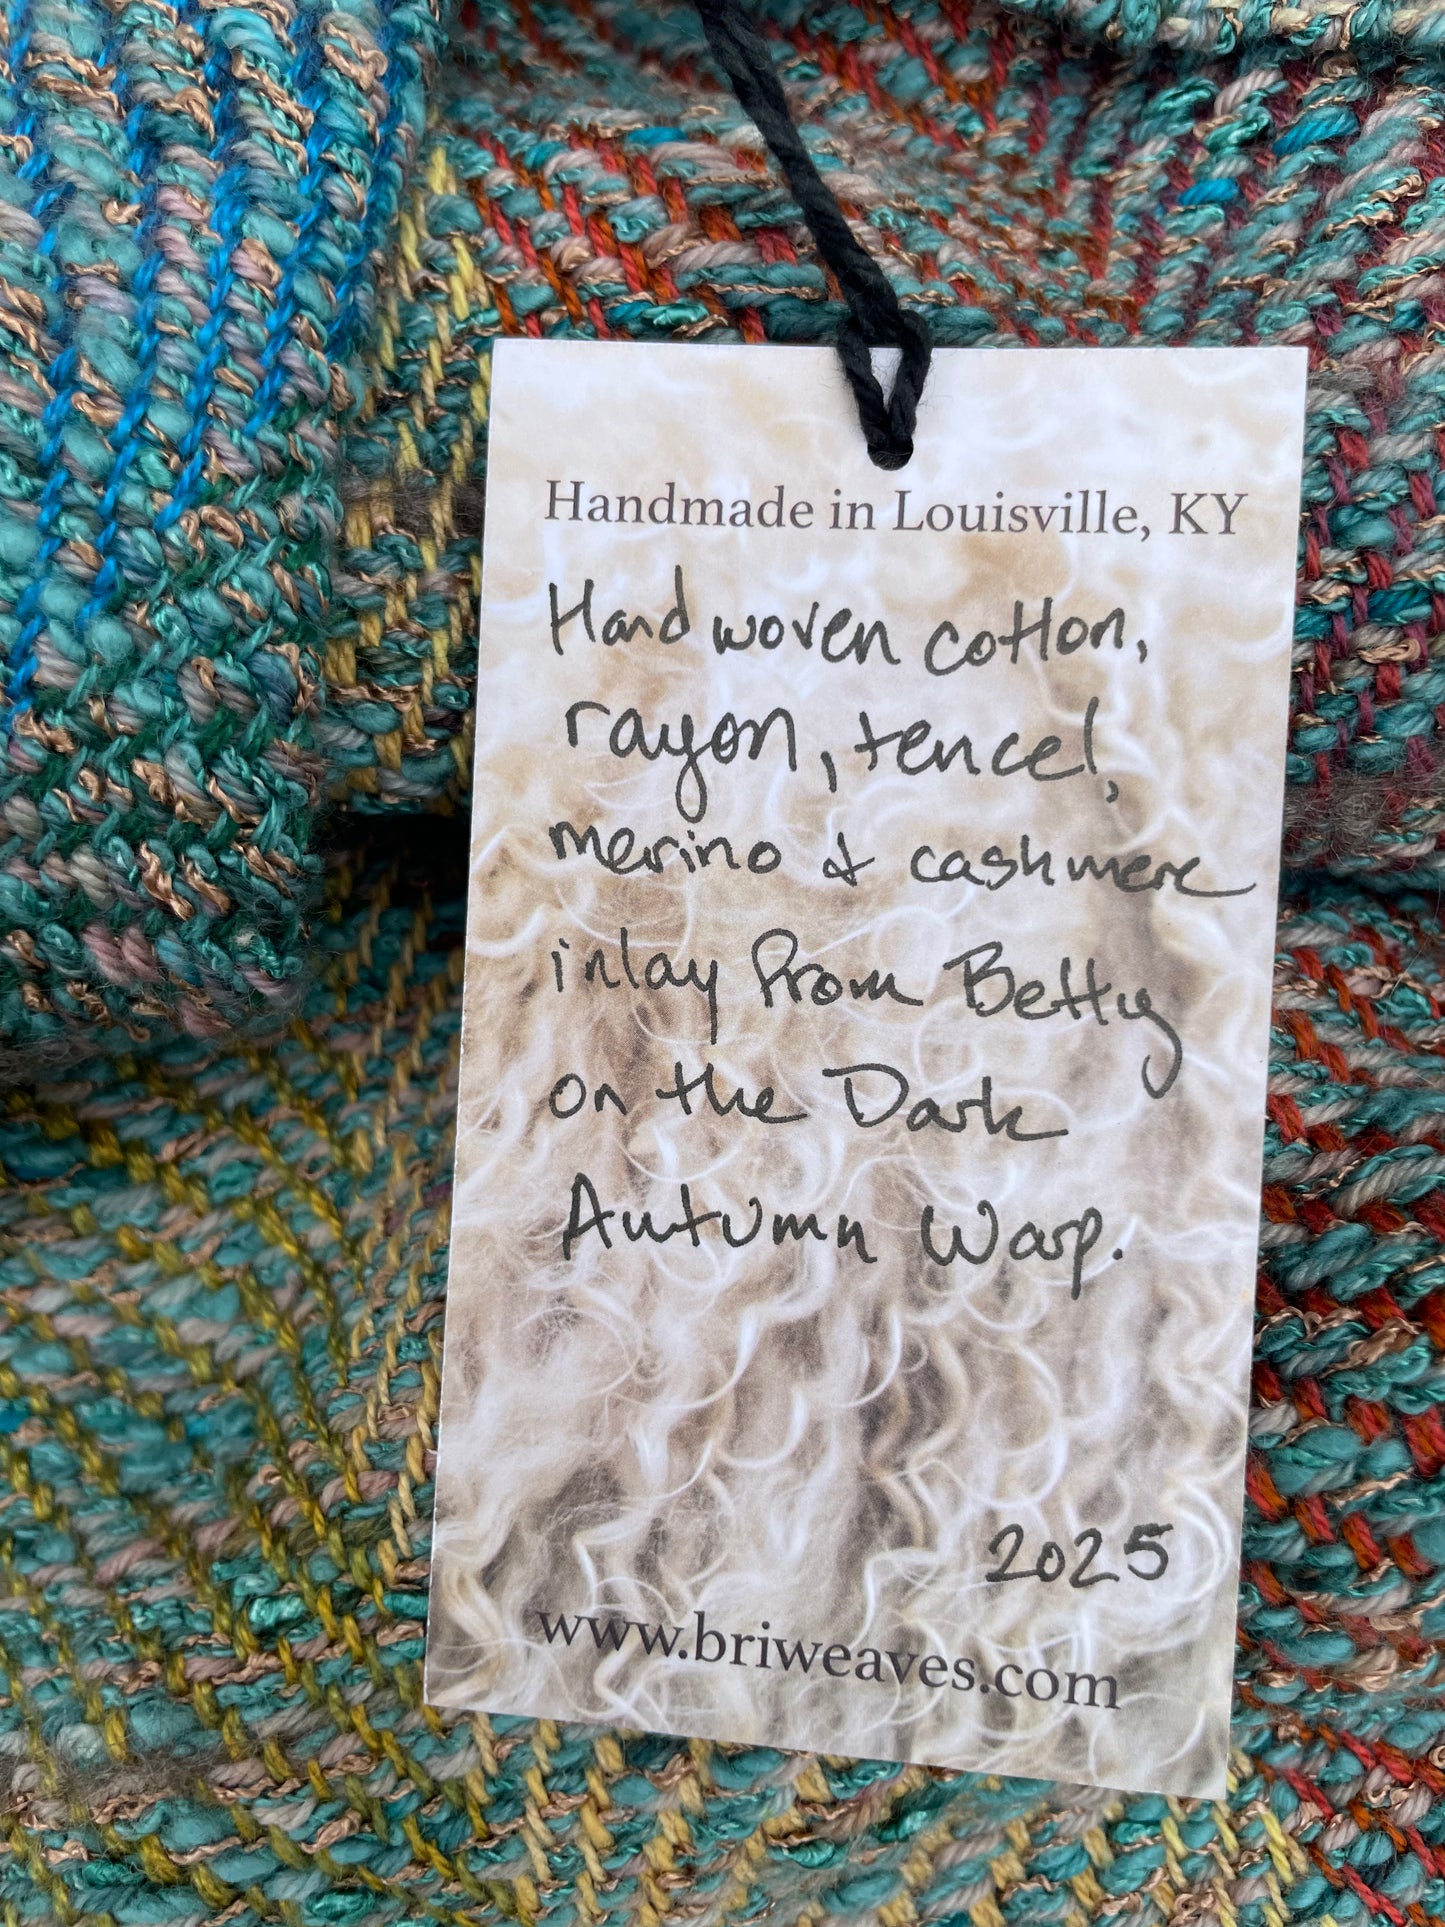 Handmade in Louisville, KY
Hand woven cotton,
rayon, tencel,
merino & cashmere
inlay from Betty
on the Dark
Autumn Warp.
2025
www.briweaves.com